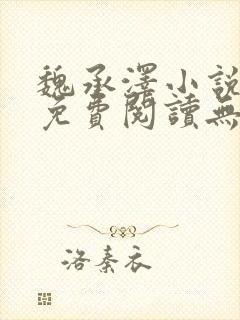 魏承澤小說
免費閱讀無
洛秦衣